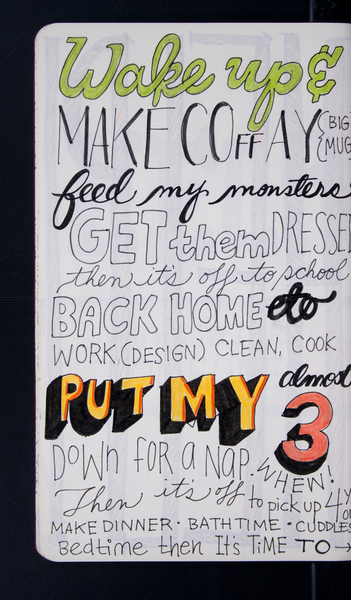 Wake up &
MAKE COFFAY {BIG MUG
feed my monsters
GET them DRESSED
then it's off to school
BACK HOME to
WORK (DESIGN) CLEAN, COOK
PUT MY almost 3
DOWN FOR A NAP. WHEW!
Then it's off to pick up 4 Y
MAKE DINNER · BATHTIME · CUDDLES
Bedtime then It's TIME TO →